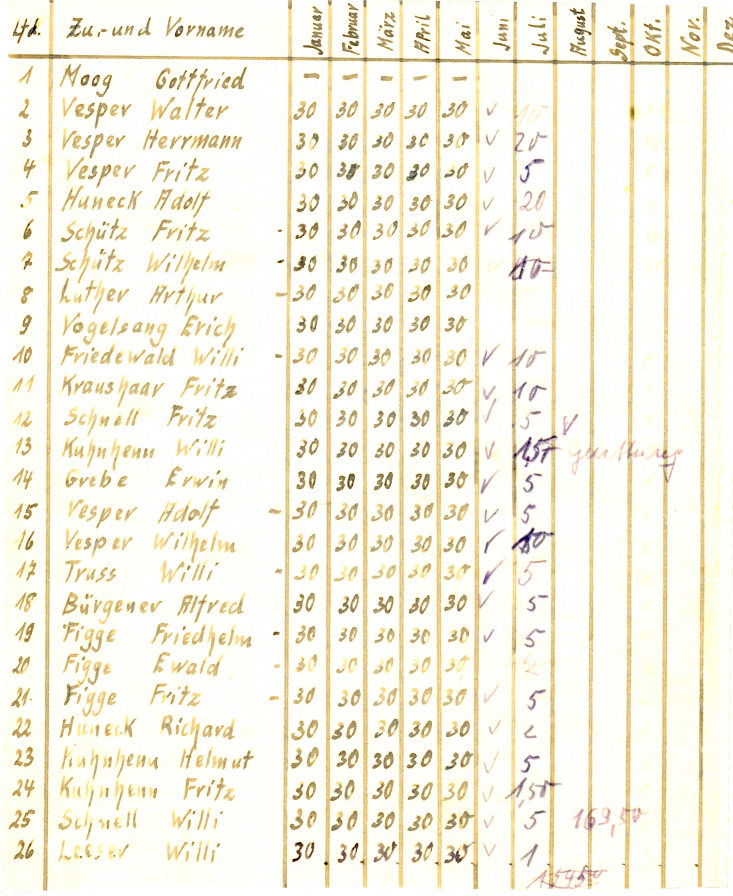 Lfd. Zu.-und Vorname Januar Februar März April Mai Juni Juli August Sept. Okt. Nov. Dez
1 Moog Gottfried - - - - -
2 Vesper Walter 30 30 30 30 30 v 10
3 Vesper Herrmann 30 30 30 30 30 v 20
4 Vesper Fritz 30 30 30 30 30 v 5
5 Huneck Adolf 30 30 30 30 30 v 20
6 Schütz Fritz - 30 30 30 30 30 v 10
7 Schütz Wilhelm - 30 30 30 30 30 v 10-
8 Luther Arthur - 30 30 30 30 30
9 Vogelsang Erich 30 30 30 30 30
10 Friedewald Willi - 30 30 30 30 30 v 10
11 Kraushaar Fritz 30 30 30 30 30 v 10
12 Schnell Fritz 30 30 30 30 30 v 5 v
13 Kuhnhenn Willi 30 30 30 30 30 v
14 Grebe Erwin 30 30 30 30 30 v 5
15 Vesper Adolf - 30 30 30 30 30 v 5
16 Vesper Wilhelm 30 30 30 30 30 v 10
17 Truss Willi - 30 30 30 30 30 v 5
18 Bürgener Alfred 30 30 30 30 30 v 5
19 Figge Friedhelm - 30 30 30 30 30 v 5
20 Figge Ewald - 30 30 30 30 30 2
21. Figge Fritz - 30 30 30 30 30 v 5
22 Huneck Richard 30 30 30 30 30 v 2
23 Kuhnhenn Helmut 30 30 30 30 30 v 5
24 Kuhnhenn Fritz 30 30 30 30 30 v 1,50
25 Schnell Willi 30 30 30 30 30 v 5 169,50
26 Leeser Willi 30 30 30 30 30 v 1